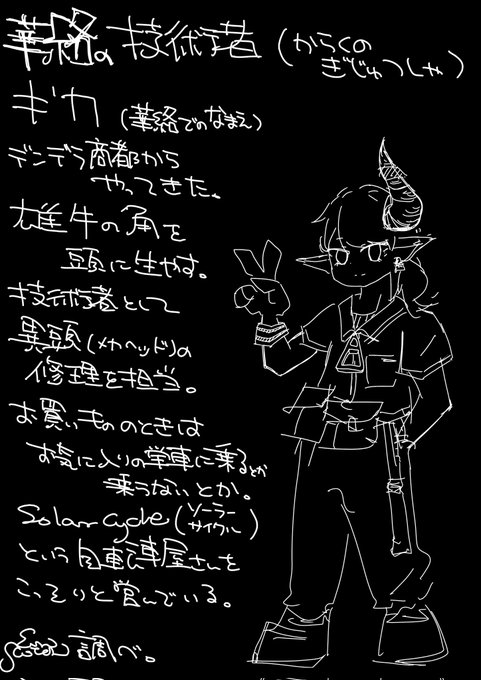 華絡の技術者（からくの
ぎじゅつしゃ）
ギカ（華絡でのなまえ）
デンデラ商都から
やってきた。
雄牛の角を
頭に生やす。
技術者として
異頭（メカヘッド）の
修理を担当。
お買いもののときは
お気に入りの単車に乗るとか
乗らないとか。
Solar cycle（ソーラーサイクル）
という自転車屋さんを
こっそりと営んでいる。
調べ。